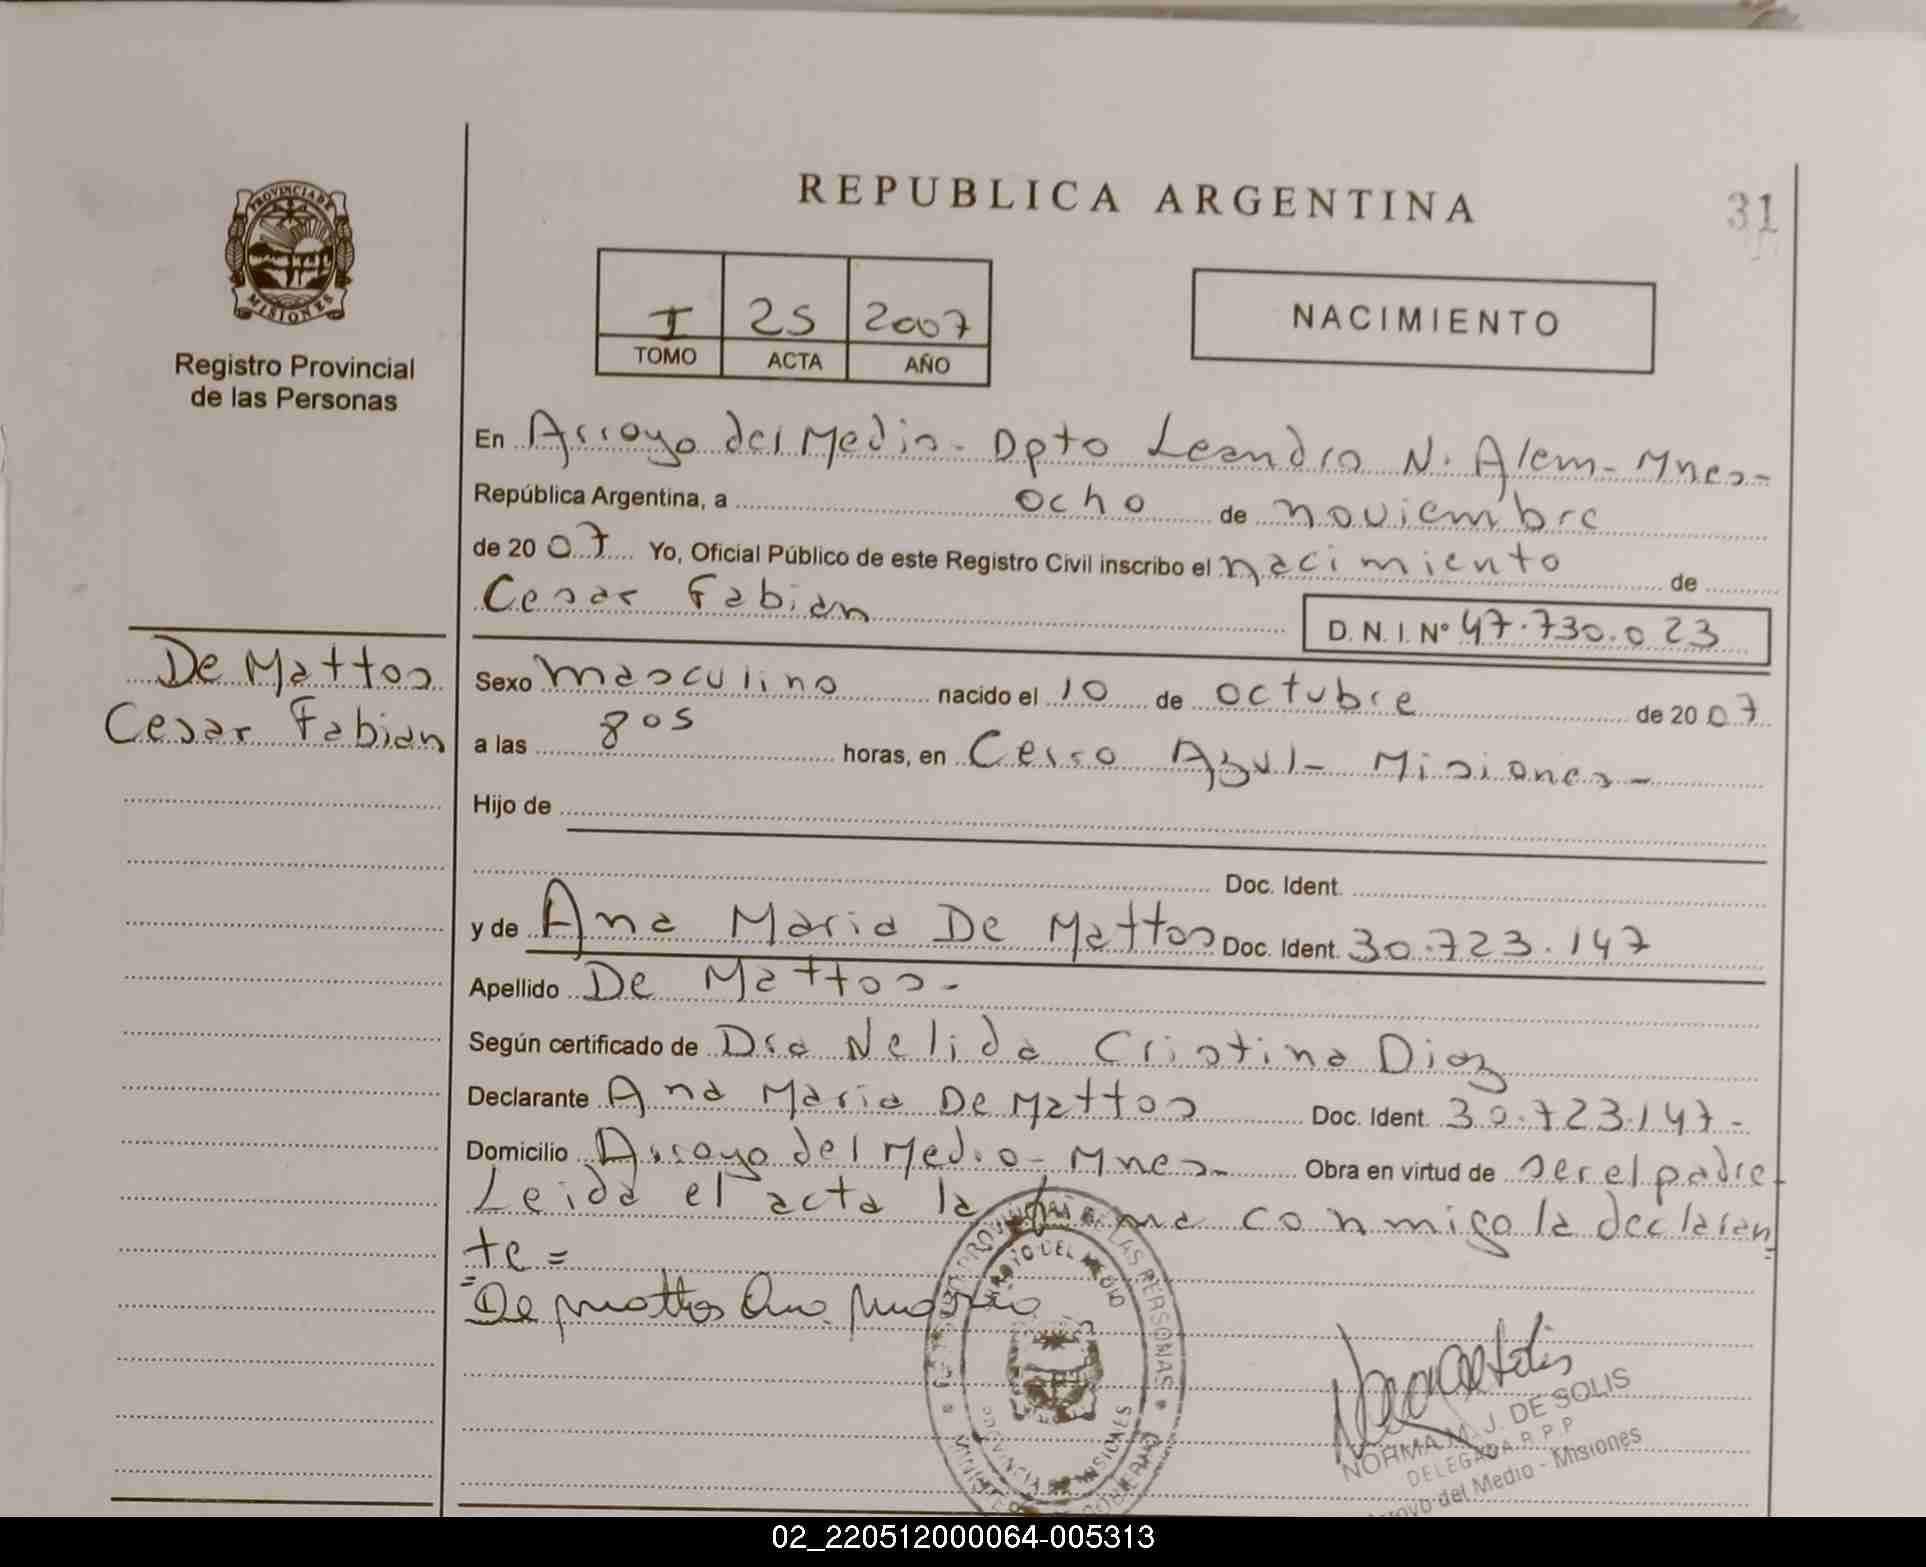 REPUBLICA ARGENTINA
31
PROVINCIA DE
MISIONES
Registro Provincial
de las Personas
I 25 2007
TOMO ACTA AÑO
NACIMIENTO
En Arroyo del Medio - Dpto Leandro N. Alem - Mnes -
República Argentina, a ocho de noviembre
de 20 07 Yo, Oficial Público de este Registro Civil inscribo el nacimiento de
Cesar Fabian
D. N. I. Nº 47.730.023
De Mattos
Cesar Fabian
Sexo masculino nacido el 10 de octubre de 20 07
a las 8 05 horas, en Cerro Azul - Misiones -
Hijo de
Doc. Ident.
y de Ana Maria De Mattos Doc. Ident. 30.723.147
Apellido De Mattos -
Según certificado de Dra Nelida Cristina Diaz
Declarante Ana Maria De Mattos Doc. Ident. 30.723.147 -
Domicilio Arroyo del Medio - Mnes - Obra en virtud de ser el padre -
Leida el acta la firma conmigo la declaran
te =
De Mattos Ana Maria
NORMA M. J. DE SOLIS
DELEGADA R.P.P
Arroyo del Medio - Misiones
02_220512000064-005313